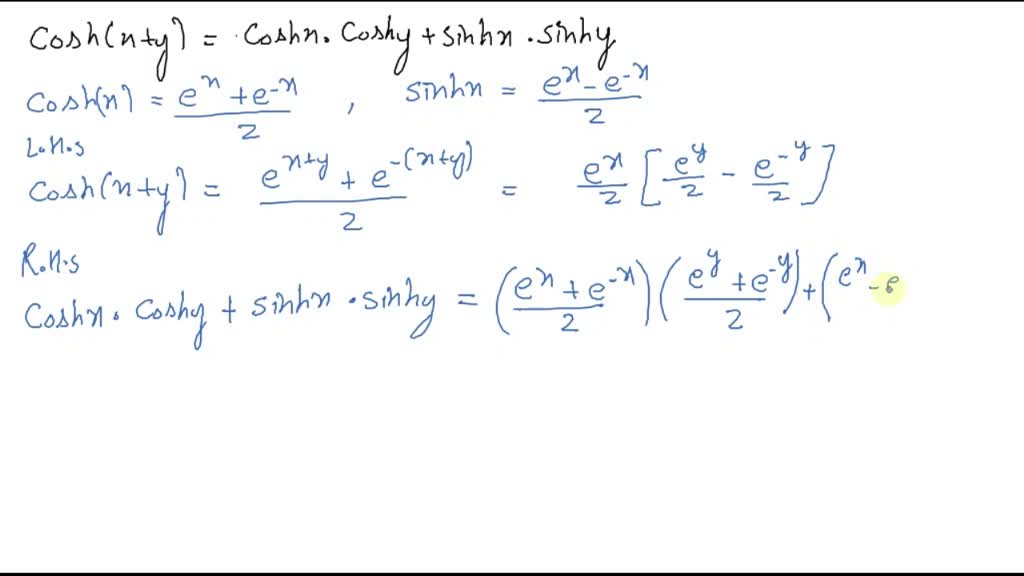 Cosh(x+y) = Coshx. Coshy + sinhx .sinhy
Cosh(x) = e^x + e^-x / 2 , sinhx = e^x - e^-x / 2
L.H.S
Cosh(x+y) = e^x+y + e^-(x+y) / 2 = e^x / 2 [ e^y / 2 - e^-y / 2 ]
R.H.S
Coshx . Coshy + sinhx . sinhy = ( e^x + e^-x / 2 ) ( e^y + e^-y / 2 ) + ( e^x - e